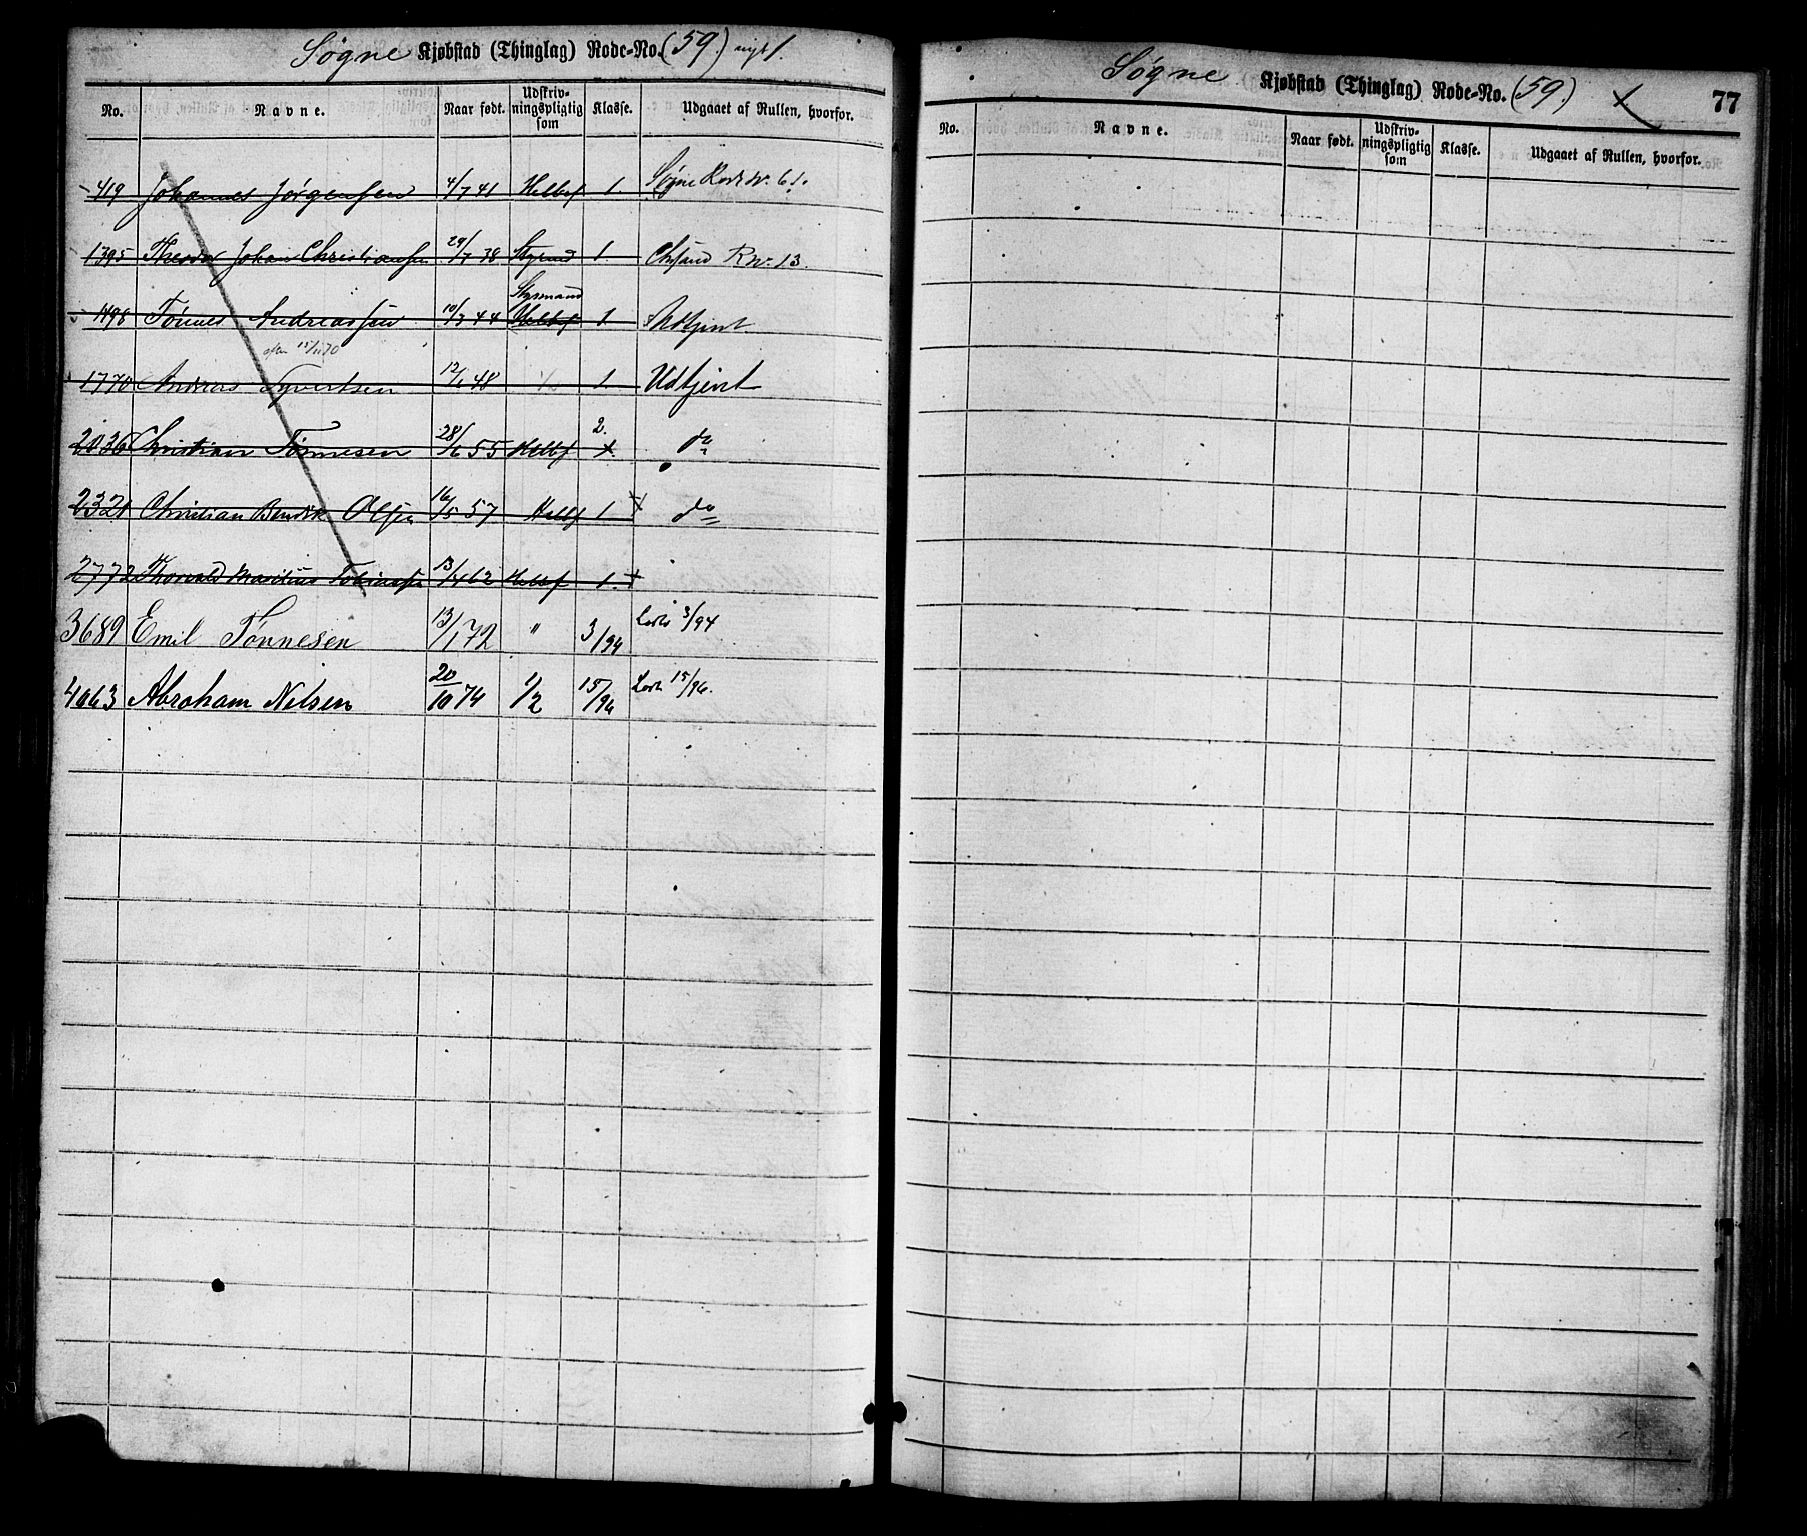 Søgne Kjøbstad (Thinglag) Rode-No. (59.) nyt 1.
No. Navne. Naar født. Udskriv-ningspligtig som Klasse. Udgaaet af Rullen, hvorfor.
419 Johannes Jørgensen 4/7 41 Helbef 1. Søgne Rode Nr. 61.
1395 Theodor Johan Christiansen 29/7 38 Styrmd 1. Chrsand R Nr. 13.
Styrmand
1498 Tønnes Andreassen 10/3 44 Helbef 1. Udtjent
15/11 70
1770 Andreas Syvertsen 12/1 48 1/2 1. Udtjent
2.
2036 Christian Tønnesen 28/6 55 Helbf 1. do
2321 Christian Bendik Olsen 16/5 57 Helbf 1. + do
2772 Thorvald Mositius Tobiassen 13/4 62 Helbf 1. +
3689 Emil Tønnesen 13/1 72 " 3/94 3/94
4063 Abraham Nilsen 20/10 74 1/2 15/96 15/96.
Søgne Kjøbstad (Thinglag) Rode-No. (59.) x 77
No. Navne. Naar født. Udskriv-ningspligtig som Klasse. Udgaaet af Rullen, hvorfor.